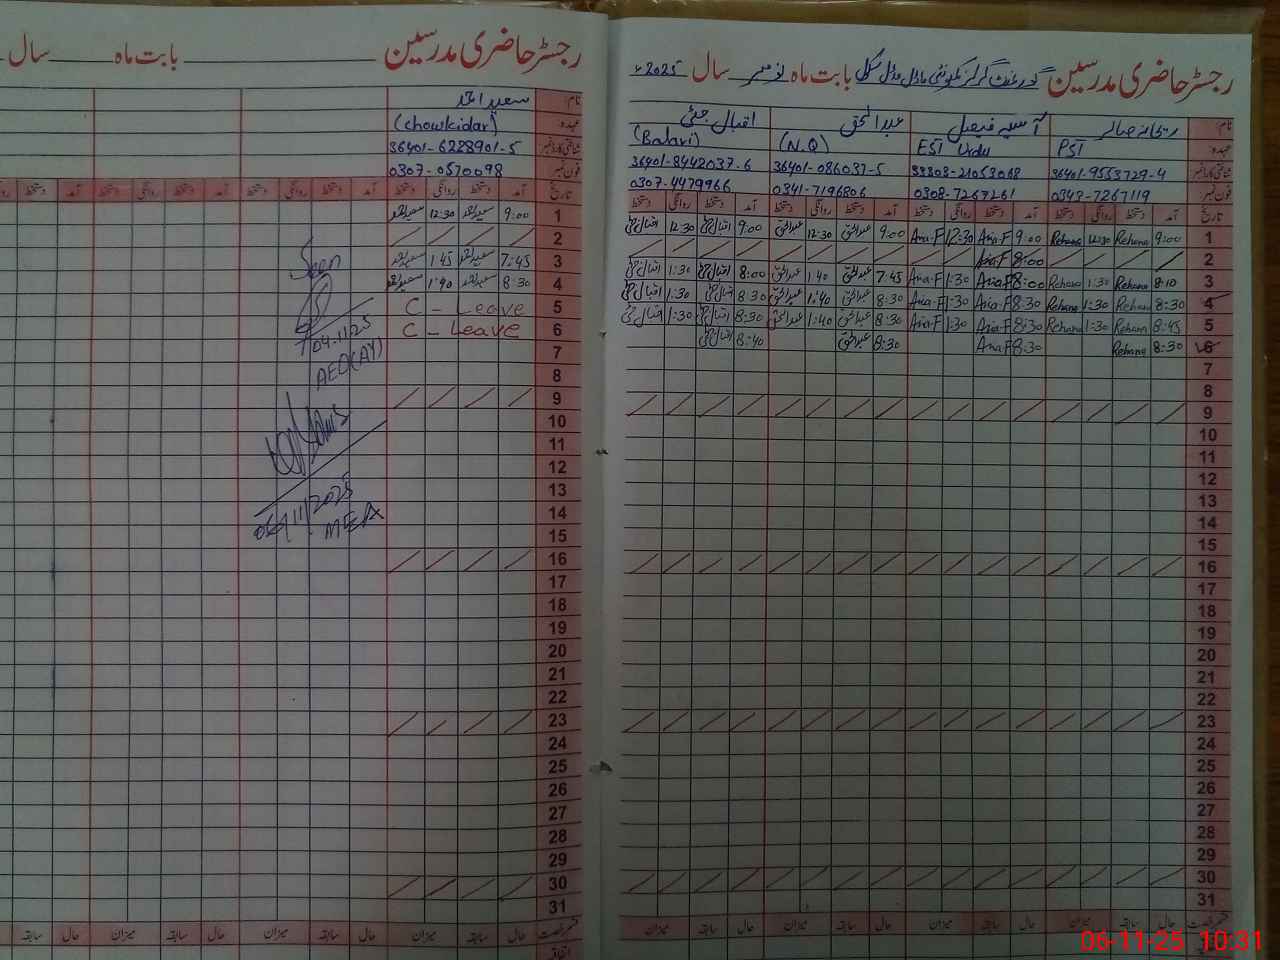 رجسٹر حاضری مدرسین گورنمنٹ گرلز کمیونٹی ماڈل مڈل سکول بابت ماہ نومبر سال 2025ء
نام ریحانہ صابر آسیہ فیصل عبدالحق اقبال جٹی
عہدہ PST EST Urdu (N.Q) (Balavi)
شناختی کارڈ نمبر 36401-9553729-4 36401-086037-5 36401-8442037-6
فون نمبر 0347-7267119 0308-7267261 0341-7196806 0307-4479966
تاریخ آمد دستخط روانگی دستخط آمد دستخط روانگی دستخط آمد دستخط روانگی دستخط آمد دستخط روانگی دستخط
1 9:00 Rehana 12:30 Rehana 9:00 Asia.F 12:30 Asia.F 9:00 عبدالحق 12:30 عبدالحق 9:00 اقبال جٹی 12:30 اقبال جٹی
2 8:00 Asia.F
3 8:10 Rehana 1:30 Rehana 8:00 Asia.F 1:30 Asia.F 7:45 عبدالحق 1:40 عبدالحق 8:00 اقبال جٹی 1:30 اقبال جٹی
4 8:30 Rehana 1:30 Rehana 8:30 Asia.F 1:30 Asia.F 8:30 عبدالحق 1:40 عبدالحق 8:30 اقبال جٹی 1:30 اقبال جٹی
5 8:45 Rehana 1:30 Rehana 8:30 Asia.F 1:30 Asia.F 8:30 عبدالحق 1:40 عبدالحق 8:30 اقبال جٹی 1:30 اقبال جٹی
6 8:30 Rehana 8:30 Asia.F 8:30 عبدالحق 8:40 اقبال جٹی
7
8
9
10
11
12
13
14
15
16
17
18
19
20
21
22
23
24
25
26
27
28
29
30
31
قسم رخصت حال سابقہ میزان حال سابقہ میزان حال سابقہ میزان حال سابقہ میزان
رجسٹر حاضری مدرسین بابت ماہ سال
نام سعید احمد
عہدہ (chowkidar)
شناختی کارڈ نمبر 36401-6228901-5
فون نمبر 0307-0570098
تاریخ آمد دستخط روانگی دستخط آمد دستخط روانگی دستخط آمد دستخط روانگی دستخط آمد دستخط روانگی
1 9:00 سعید احمد 12:30 سعید احمد
2
3 7:45 سعید احمد 1:45 سعید احمد
4 8:30 سعید احمد 1:40 سعید احمد
5 C - Leave
6 C - Leave
7
8
9
10
11
12
13
14
15
16
17
18
19
20
21
22
23
24
25
26
27
28
29
30
31
Seen
04.11.25
AEO(AY)
06/11/2025
MEA
قسم رخصت حال سابقہ میزان حال سابقہ میزان حال سابقہ میزان حال سابقہ
اتفاقی
06-11-25 10:31